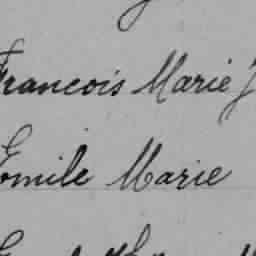 Francois Marie J
Emile Marie